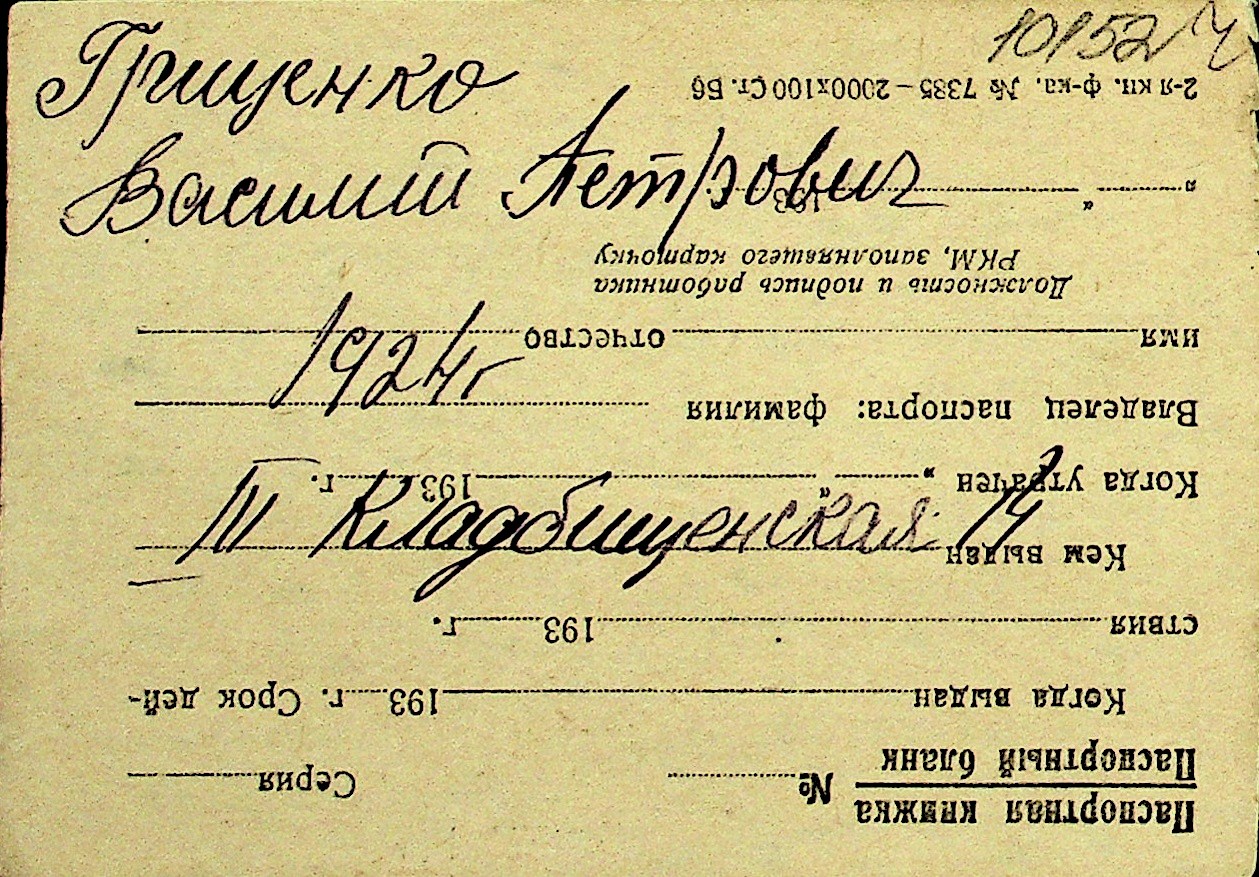 10152
Грищенко
Василий Петрович
1924 г
III Кладбищенская 14
Паспортная книжка
Паспортный бланк
№ Серия
Когда выдан 193 г. Срок дей-
ствия 193 г.
Кем выдан
Когда утрачен „ “ 193 г.
Владелец паспорта: фамилия
имя отчество
Должность и подпись работника
РКМ, заполнявшего карточку
„ “ 193
2-я кн. ф-ка. № 7385 — 2000х100 Ст. Б6